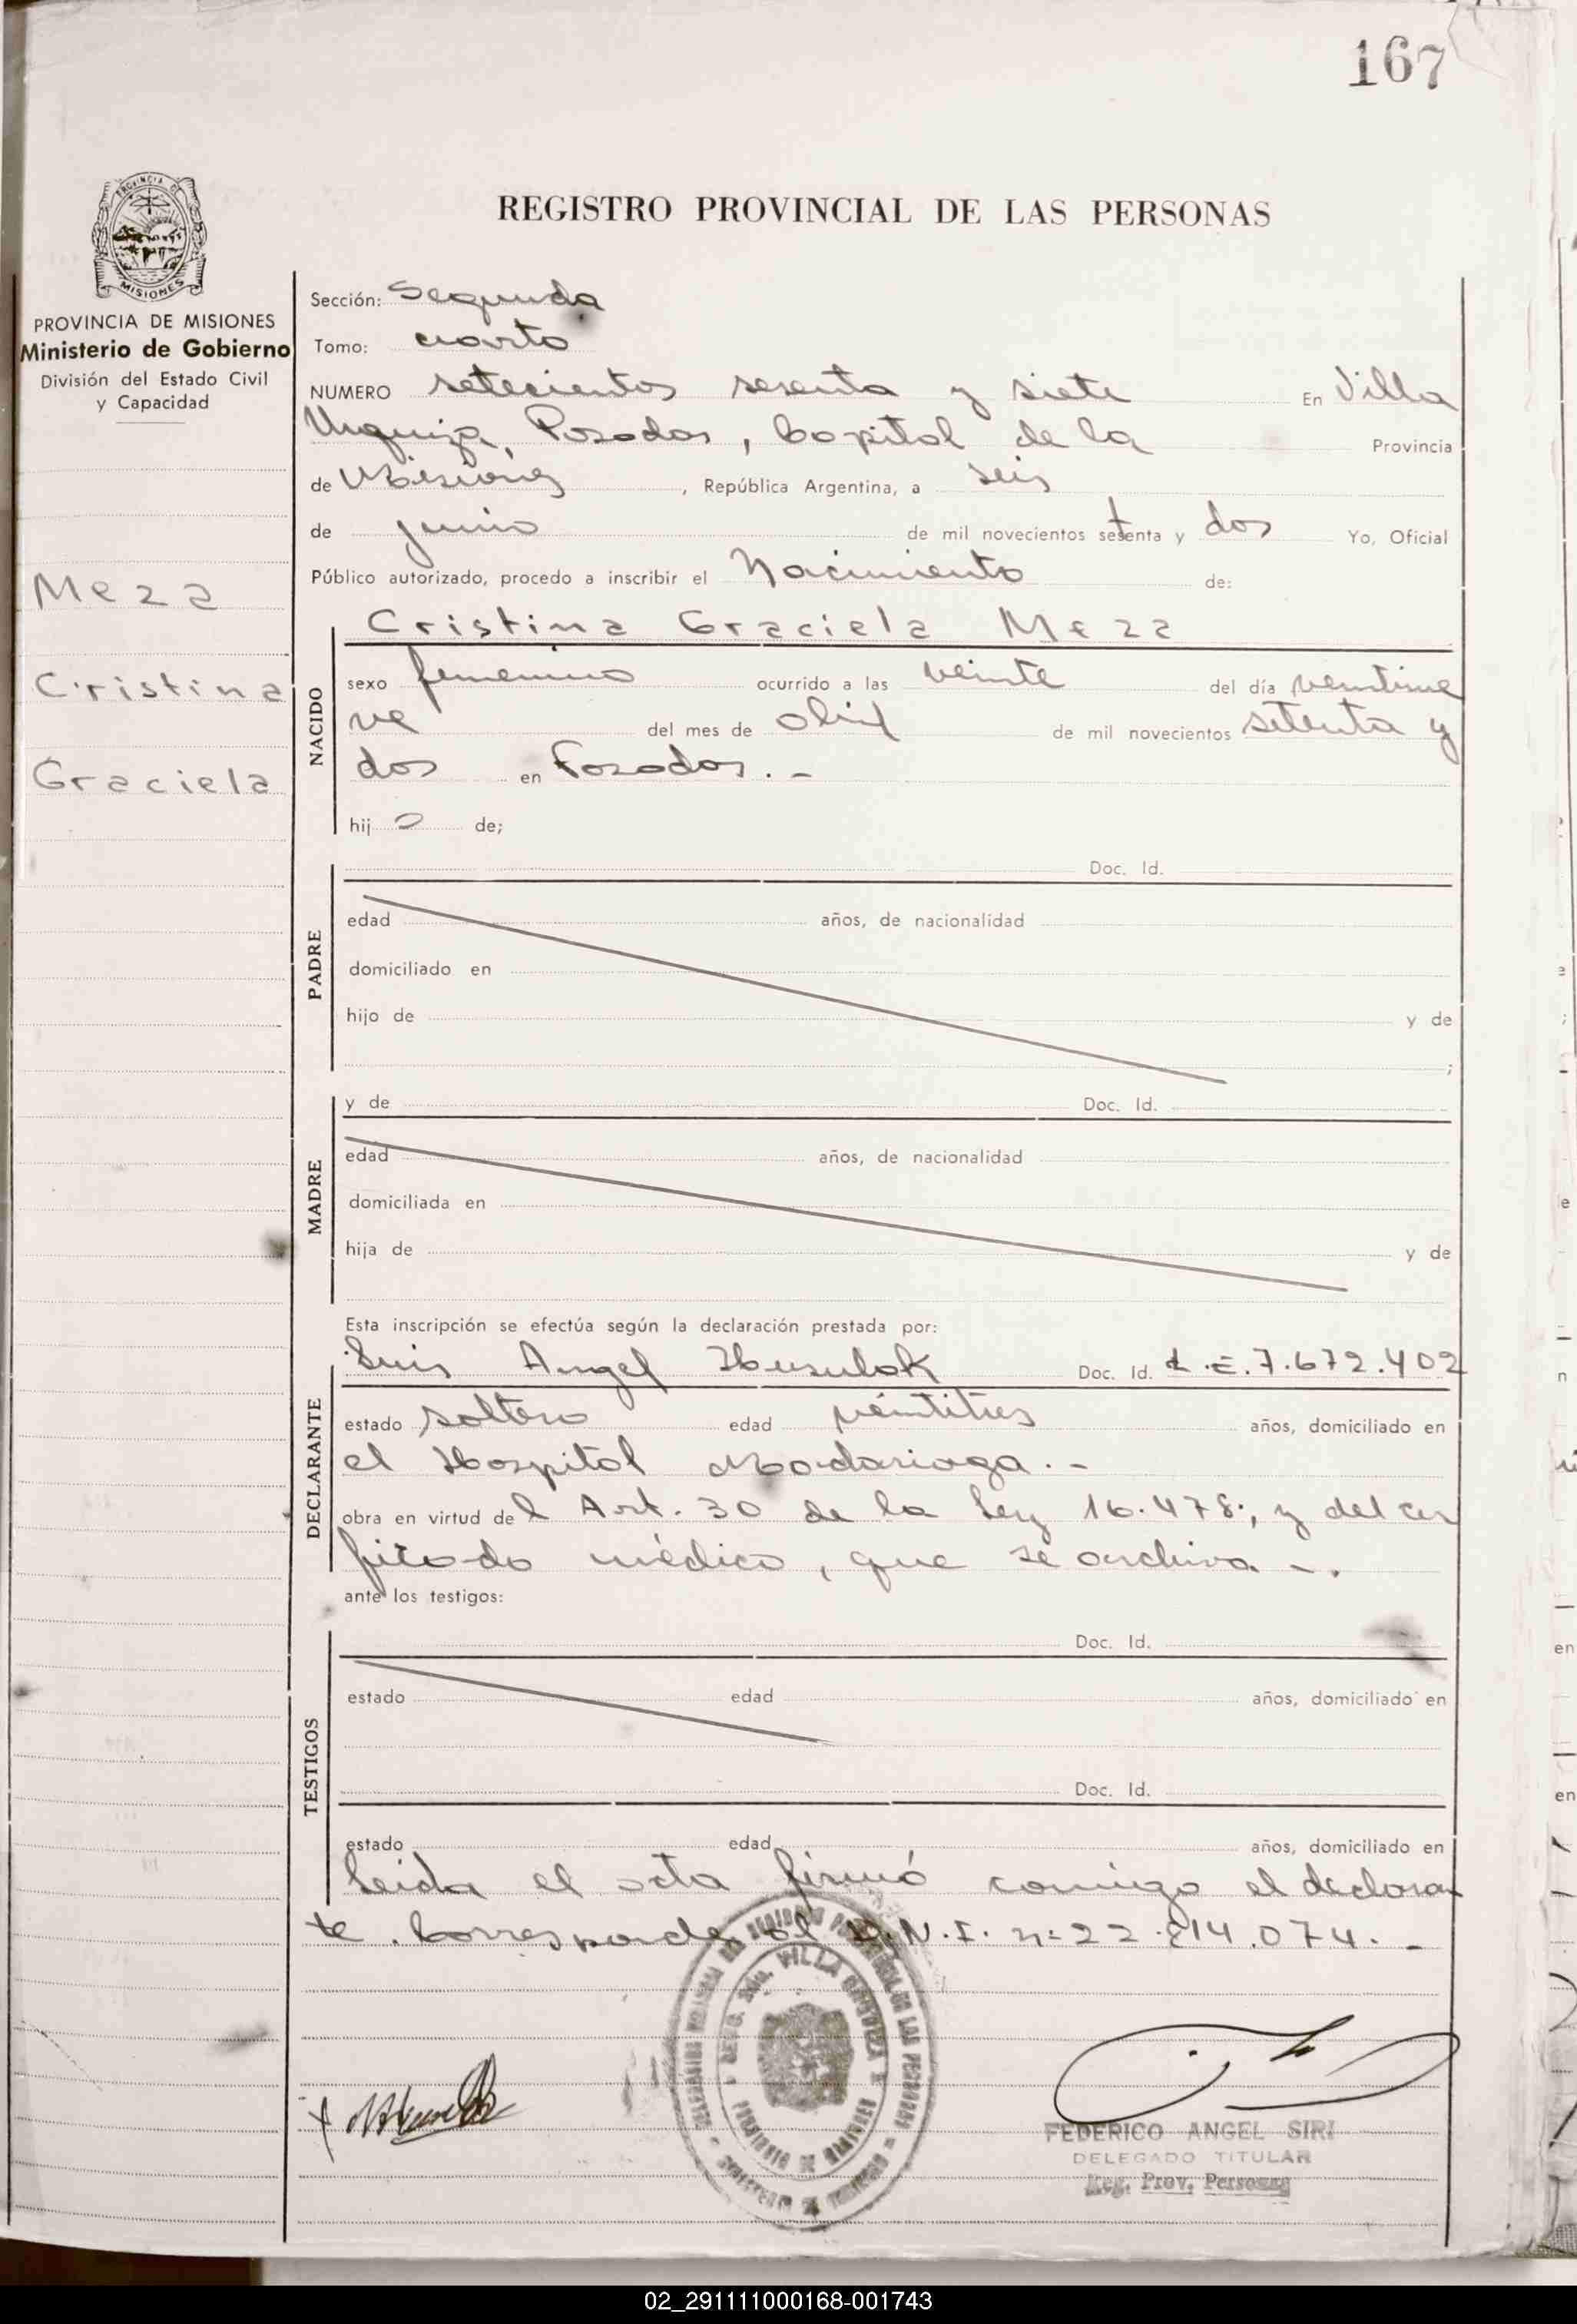 167
PROVINCIA DE MISIONES
PROVINCIA DE MISIONES
Ministerio de Gobierno
División del Estado Civil
y Capacidad
Meza
Cristina
Graciela
REGISTRO PROVINCIAL DE LAS PERSONAS
Sección: Segunda
Tomo: cuarto
NUMERO setecientos sesenta y siete En Villa
Urquiza, Posadas, Capital de la Provincia
de Misiones, República Argentina, a seis
de junio de mil novecientos setenta y dos Yo, Oficial
Público autorizado, procedo a inscribir el Nacimiento de:
Cristina Graciela Meza
NACIDO
sexo femenino ocurrido a las veinte del día veintinue
ve del mes de abril de mil novecientos setenta y
dos en Posadas. -
hij a de;
PADRE
Doc. Id.
edad años, de nacionalidad
domiciliado en
hijo de y de
;
MADRE
y de Doc. Id.
edad años, de nacionalidad
domiciliada en
hija de y de
Esta inscripción se efectúa según la declaración prestada por:
DECLARANTE
Luis Angel Doc. Id. L.E. 7.672.402
estado soltero edad veintitres años, domiciliado en
el Hospital Madariaga. -
obra en virtud del Art. 30 de la Ley 16.478; y del cer
tificado médico, que se archiva -.
ante los testigos:
TESTIGOS
Doc. Id.
estado edad años, domiciliado en
Doc. Id.
estado edad años, domiciliado en
Leida el acta firmó conmigo el declaran
te. Corresponde al D.N.I. n: 22.814.074. -
VILLA URQUIZA
PROVINCIA DE MISIONES
FEDERICO ANGEL SIRI
DELEGADO TITULAR
Reg. Prov. Personas
02_291111000168-001743